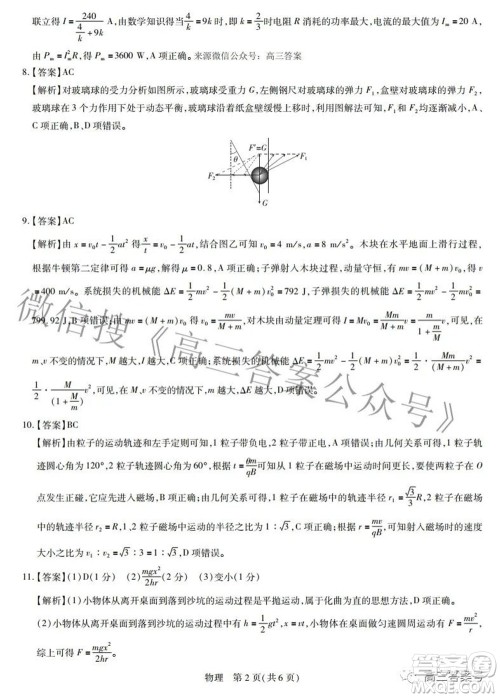 联立得 I = 240 / (4/k + 9k), 由数学知识得当 4/k = 9k 时, 即 k = 2/3 时电阻 R 消耗的功率最大, 电流的最大值为 Iₘ = 20 A,
由 Pₘ = Iₘ²R, 得 Pₘ = 3600 W, A 项正确。来源微信公众号: 高三答案
8.【答案】AC
【解析】对玻璃球的受力分析如图所示, 玻璃球受重力 G、左侧钢尺对玻璃球的弹力 F₁, 盒壁对玻璃球的弹力 F₂,
玻璃球在 3 个力作用下处于动态平衡, 玻璃球沿着纸盒壁缓慢上移时, 利用图解法可知, F₁ 和 F₂ 均逐渐减小, A、
C 项正确, B、D 项错误。
F'=G
θ
F₂
F₁
G
9.【答案】AC
【解析】由 x = v₀t − 1/2 at² 得 x/t = v₀ − 1/2 at, 结合图乙可知 v₀ = 4 m/s, a = 8 m/s²。木块在水平地面上滑行过程,
根据牛顿第二定律可得 a = μg, 解得 μ = 0.8, A 项正确; 子弹射入木块过程, 动量守恒, 有 mv = (M + m)v₀, 得 v
= 400 m/s, 系统损失的机械能 ΔE = 1/2 mv² − 1/2 (M + m)v₀² = 792 J, 子弹损失的机械能 ΔE = 1/2 mv² − 1/2 mv₀² =
799.92 J, B 项错误; 由 mv = (M + m)v₀, 对木块由动量定理可得 I = Mv₀ = Mmv/(M+m) = mv/(1 + m/M), 可见, 在
m、v 不变的情况下, M 越大, I 越大, C 项正确; 系统损失的机械能 ΔE = 1/2 mv² − 1/2 (M + m)v₀² = 1/2 · Mm/(M+m) v² =
1/2 · M/(1 + M/m) v², 可见, 在 M、v 不变的情况下, m 越大, ΔE 越大, D 项错误。
10.【答案】BC
【解析】由粒子的运动轨迹和左手定则可知, 1 粒子带负电, 2 粒子带正电, A 项错误; 由几何关系可得, 1 粒子轨迹
圆心角为 120°, 2 粒子轨迹圆心角为 60°, 根据 t = θm/qB 可知 1 粒子在磁场中运动时间更长, 要使两粒子在 O
点发生正碰, 它应后进入磁场, B 项正确; 由几何关系可得, 1 粒子在磁场中的轨迹半径 r₁ = √3/3 R, 2 粒子在磁场
中的轨迹半径 r₂ = R, 1、2 粒子在磁场中运动的半径之比为 1∶√3, C 项正确; 由 r = mv/qB 可知, 粒子运动的速度
大小之比为 v₁∶v₂ = √3∶3 = 1∶√3, D 项错误。
11.【答案】(1)D(1 分) (2) mgx²/2hr (2 分) (3)变小(2 分)
【解析】(1)小物体从离开桌面到落到沙坑的运动过程是平抛运动, 属于化曲为直的思想方法, D 项正确。
(2)小物体从离开桌面到落到沙坑的运动过程中有 h = 1/2 gt², x = vt, 小物体在桌面做匀速圆周运动, 有 F = mv²/r,
综上可得 F = mgx²/2hr。
物理 第 2 页(共 6 页)
高三答案号
微信搜《高三答案公众号》